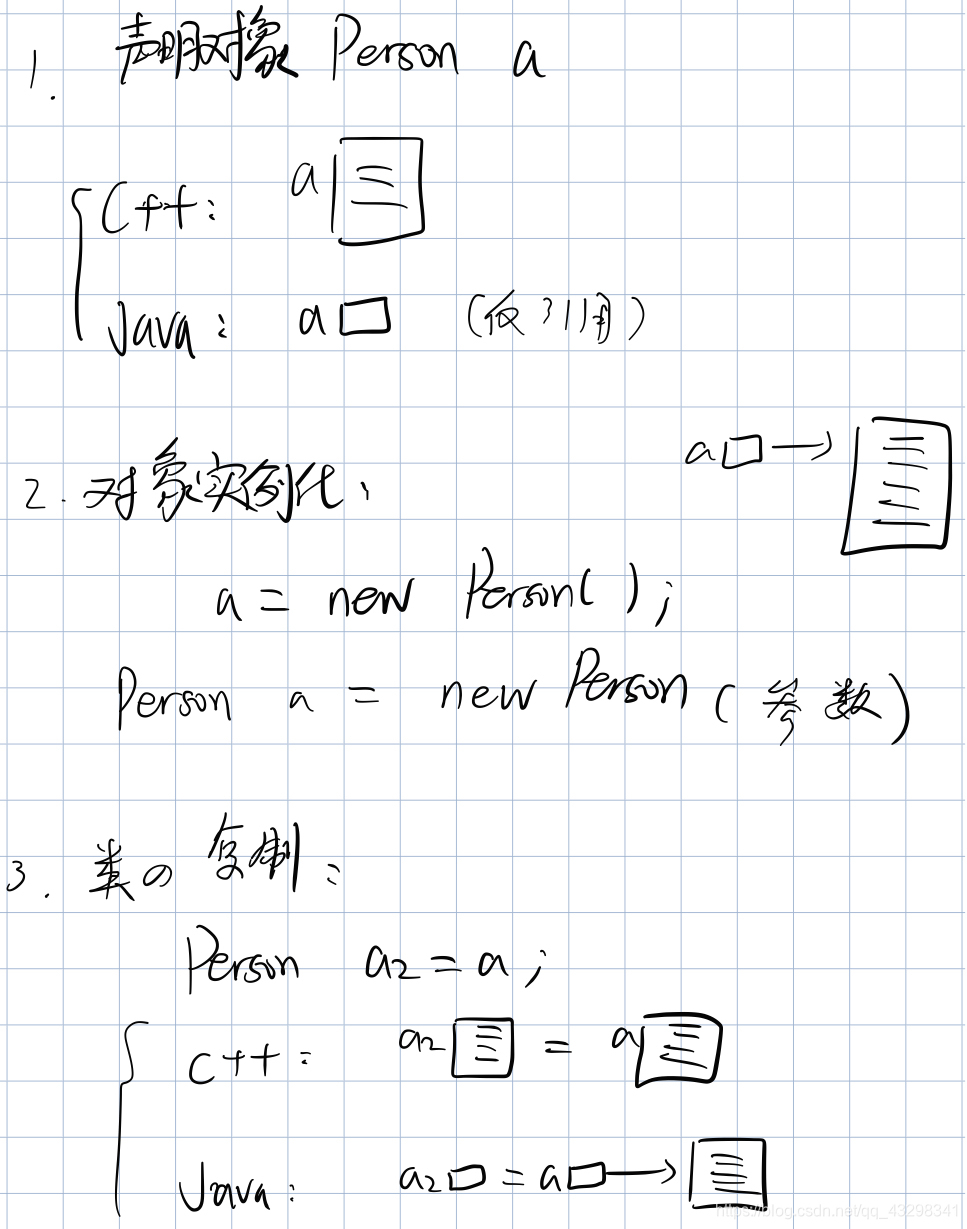 1. 声明对象 Person a
C++: a
Java: a (仅引用)
2. 对象实例化:
a
a = new Person( );
Person a = new Person (参数)
3. 类の复制:
Person a2 = a ;
C++: a2 = a
Java: a2 = a
https://blog.csdn.net/qq_43298341